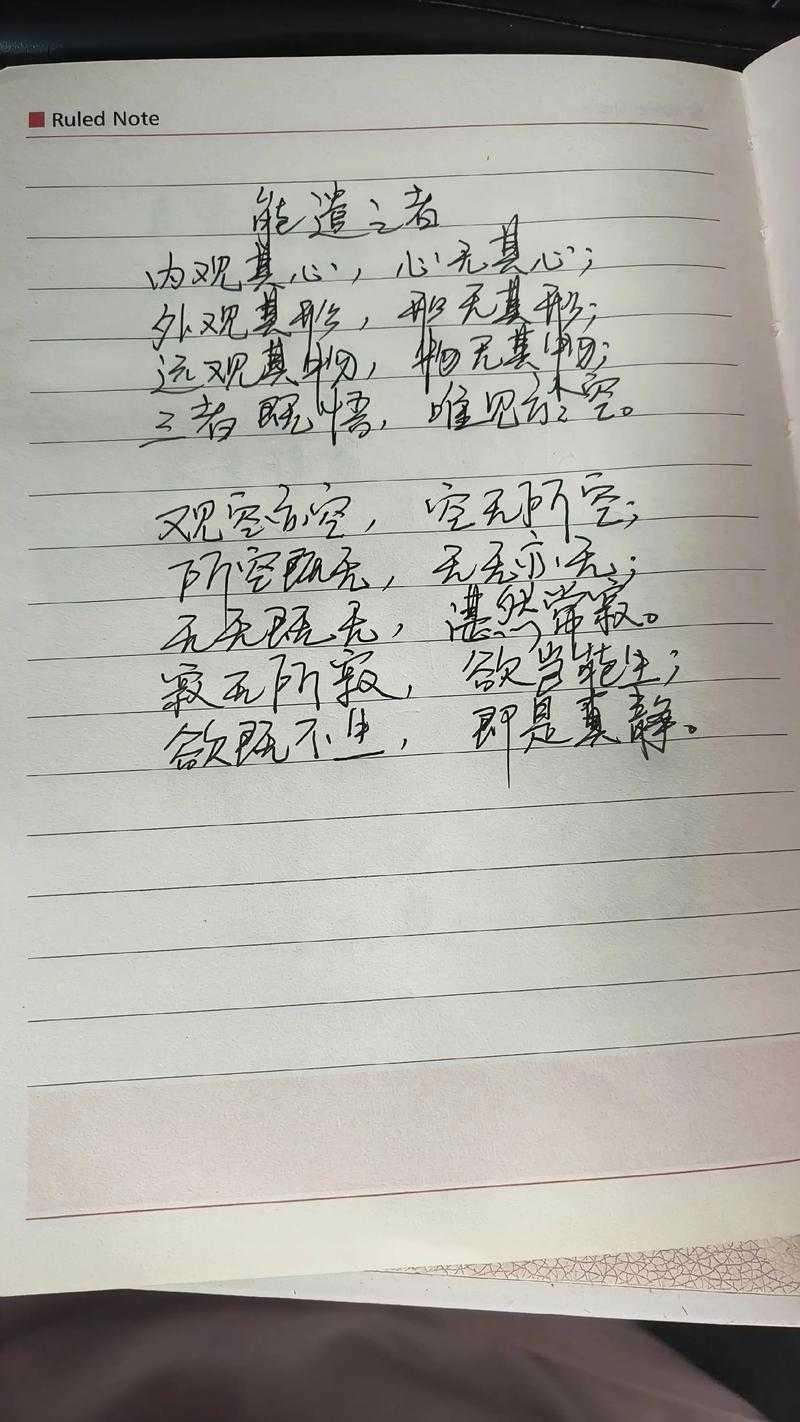 Ruled Note
能遣之者
内观其心，心无其心；
外观其形，形无其形；
远观其物，物无其物；
三者既悟，唯见于空。
观空亦空，空无所空；
所空既无，无无亦无；
无无既无，湛然常寂。
寂无所寂，欲岂能生；
欲既不生，即是真静。